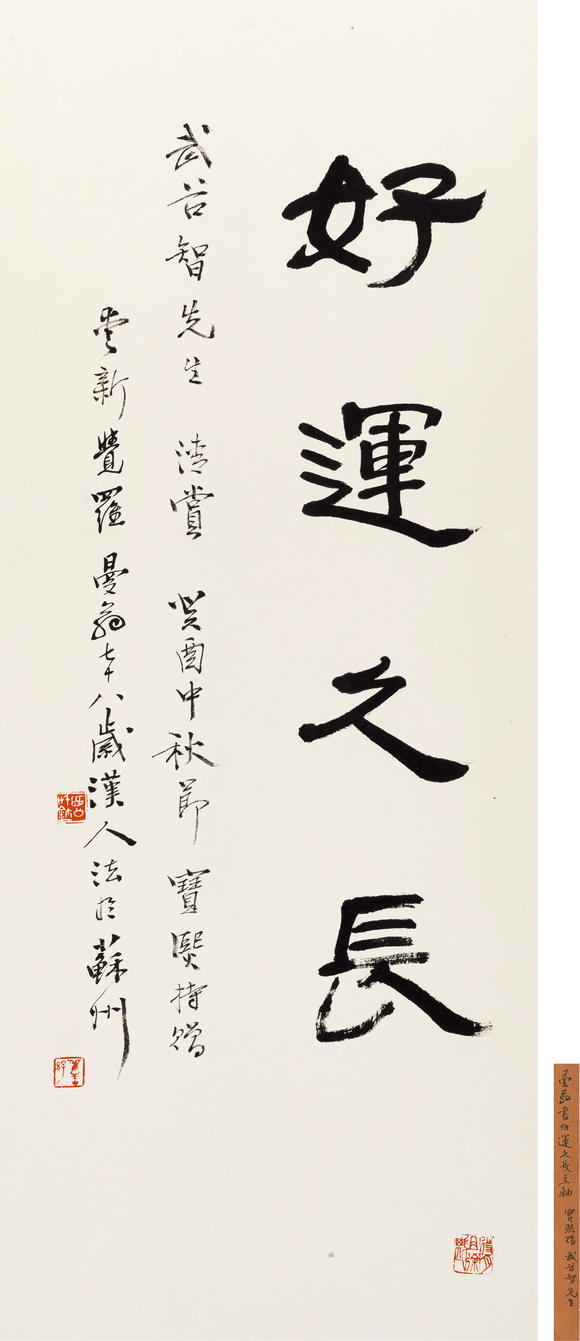 好運久長
武谷智先生 清賞 癸酉中秋節 寶熙持贈
愛新覺羅曼翁七十八歲漢人法於蘇州
曼翁書好運久長立軸 寶熙贈 武谷智先生